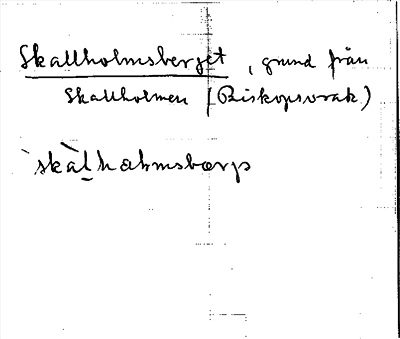 Skallholmsberget, grund från
Skallholmen (Biskopsvrak)
`skàl̠hælmsbærjə